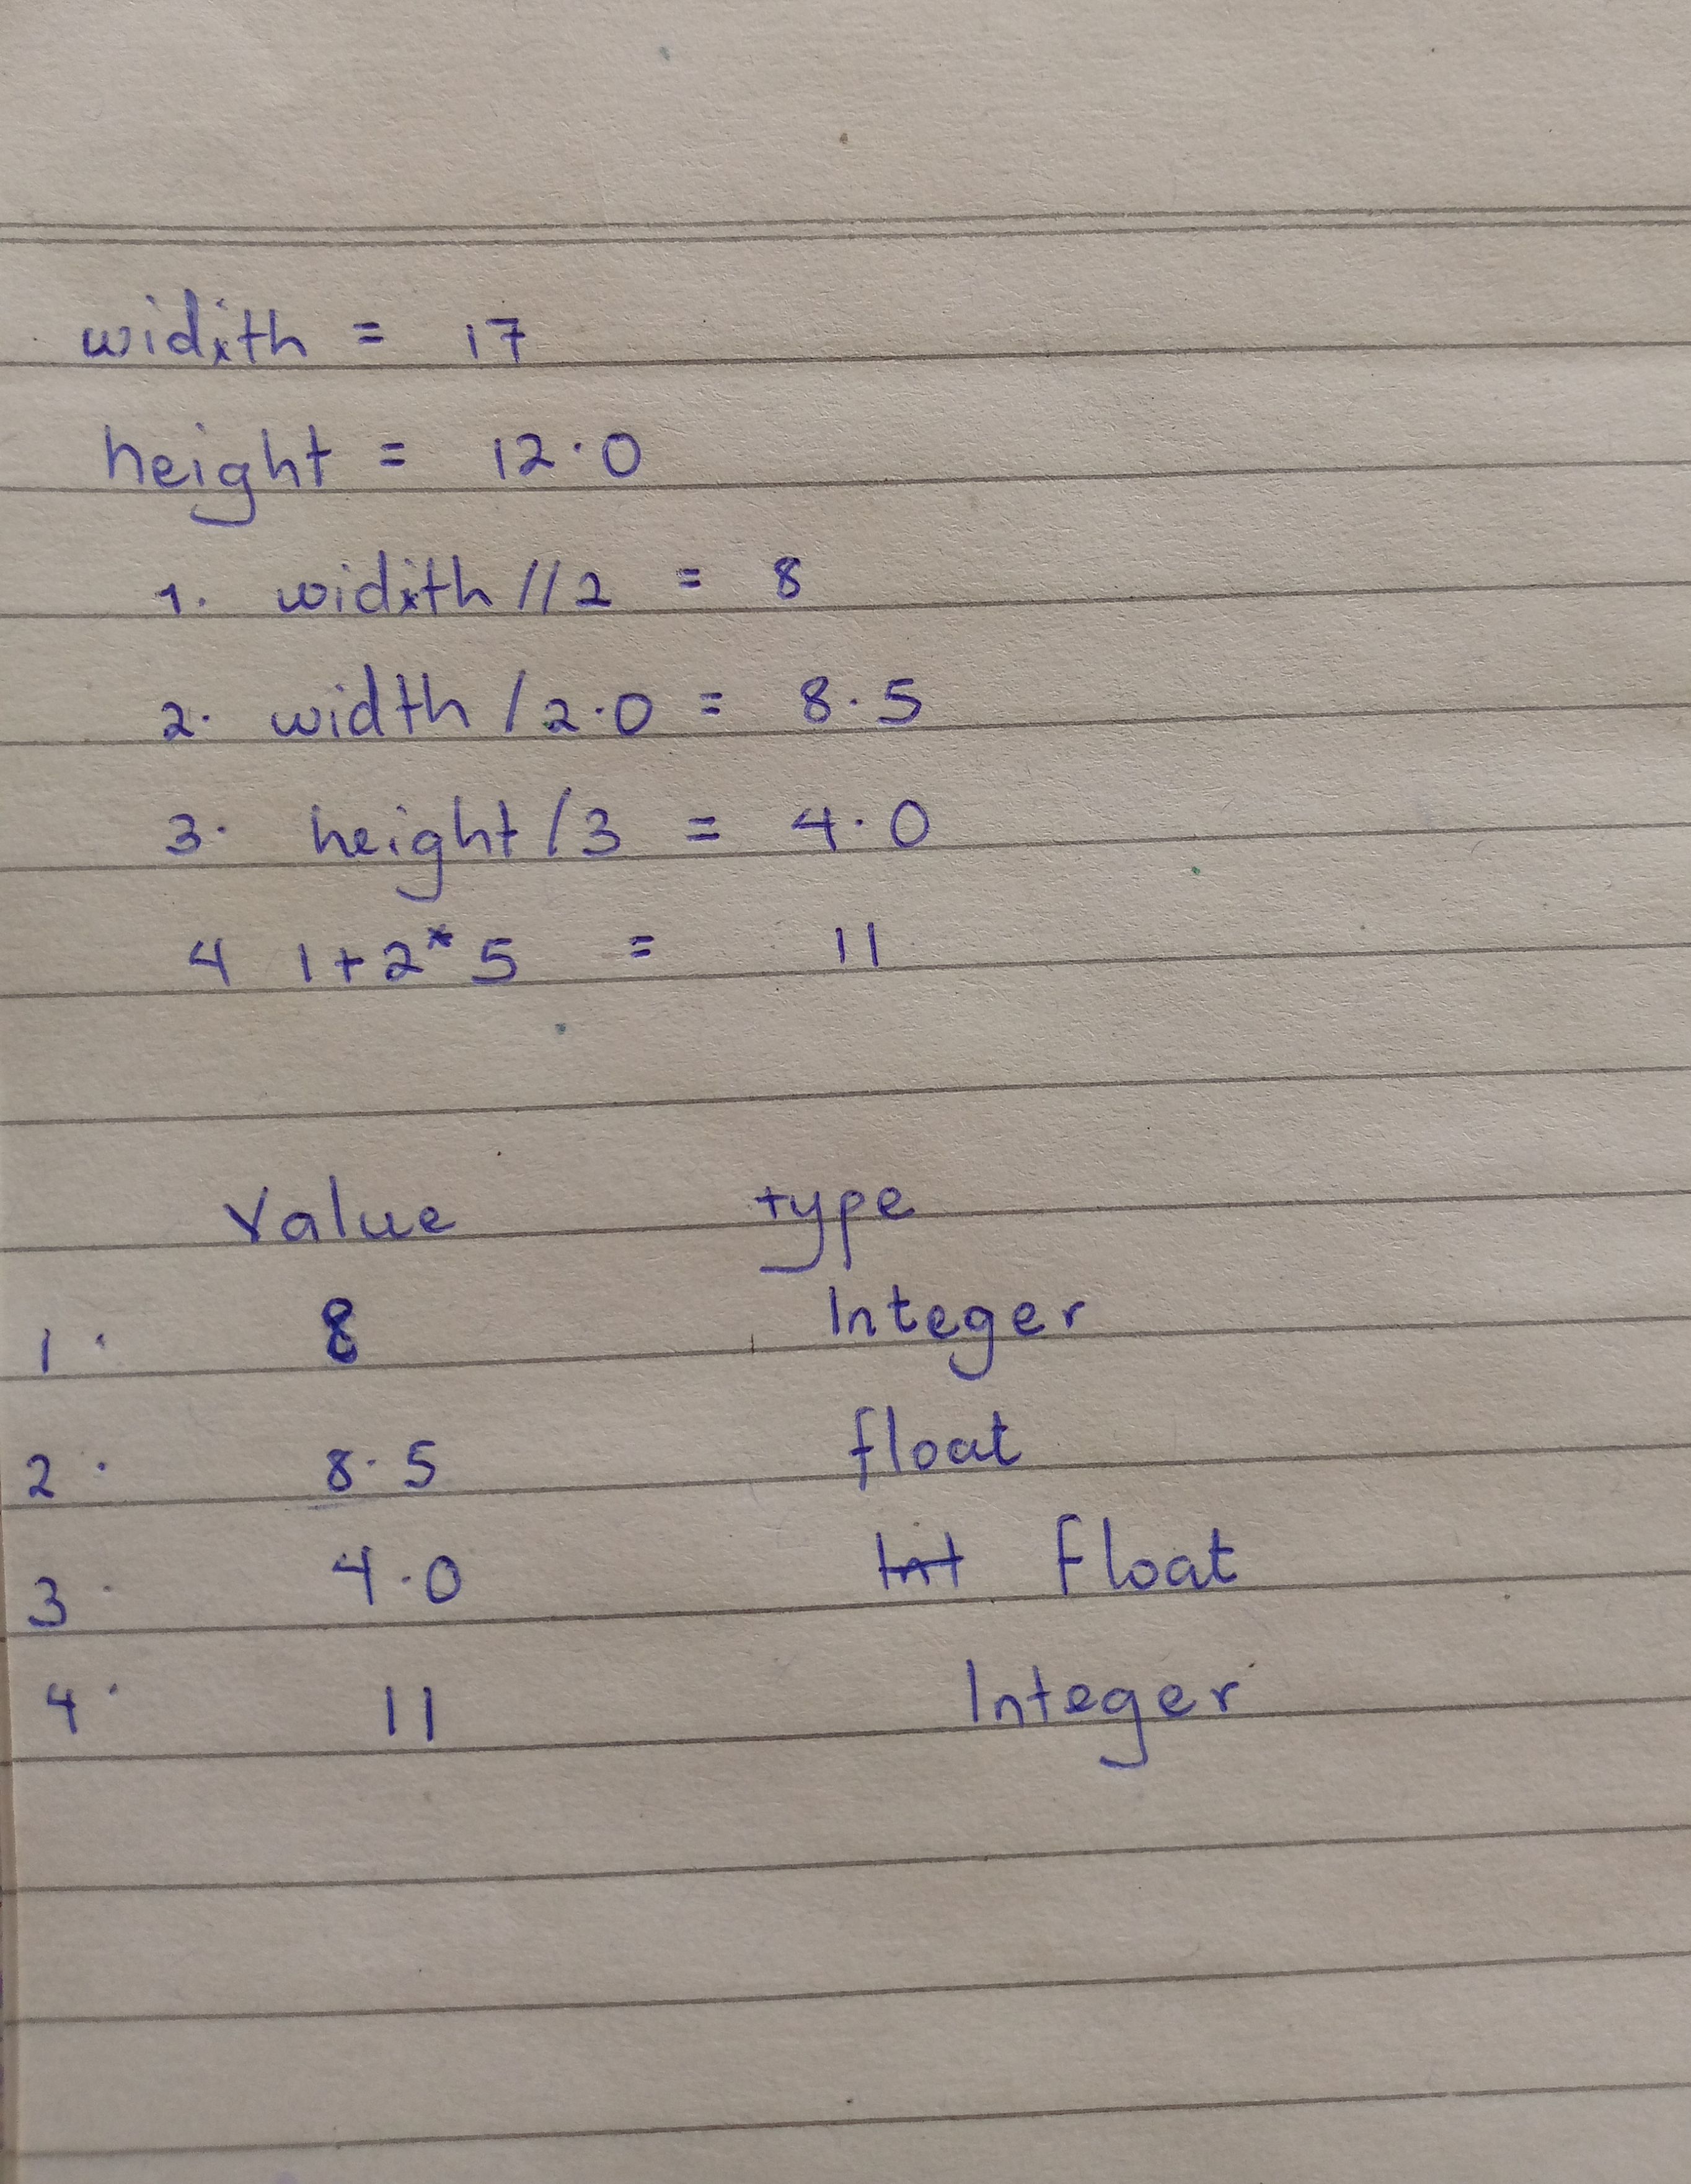 widith = 17
height = 12.0
1. widith // 2 = 8
2. width / 2.0 = 8.5
3. height / 3 = 4.0
4 1+2*5 = 11
Value type
1. 8 Integer
2. 8.5 float
3. 4.0 Int Float
4. 11 Integer